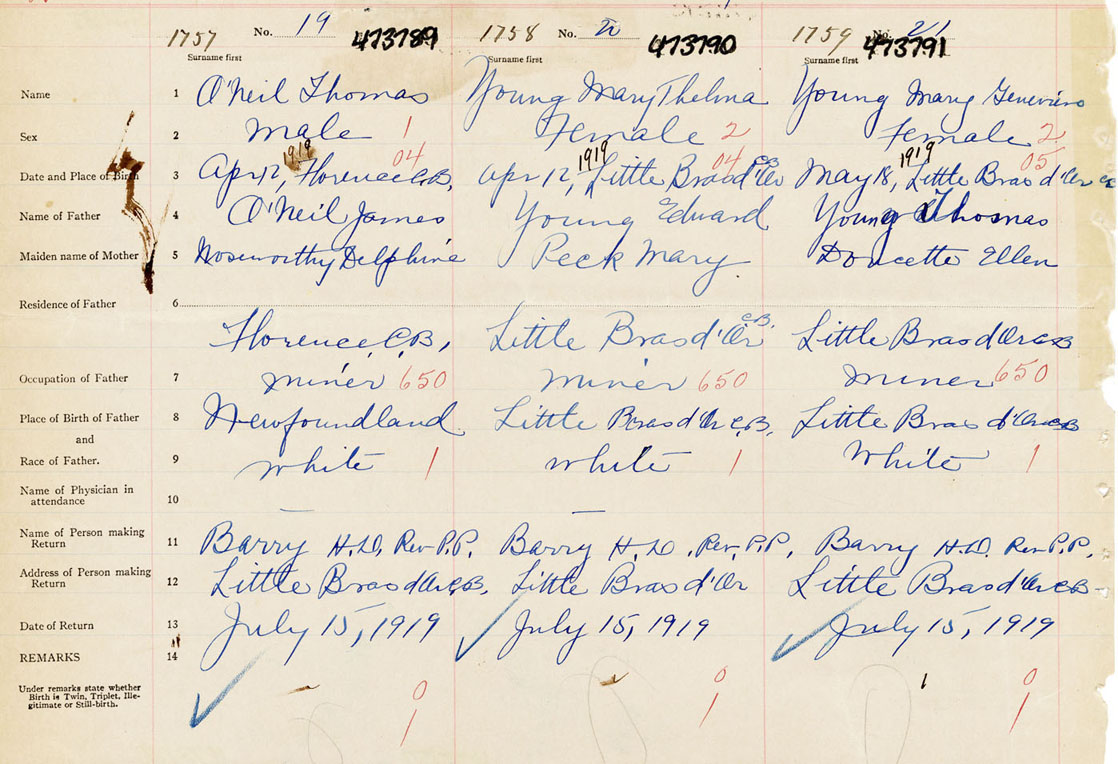 1757 No. 19 473789 1758 No. 20 473790 1759 No. 21 473791
Surname first Surname first Surname first
Name 1 O'Neil Thomas Young Mary Thelma Young Mary Genevieve
Sex 2 Male 1 Female 2 Female 2
1919 04 1919 04 C.B. 1919 05
Date and Place of Birth 3 Apr 12, Florence C.B. Apr 12, Little Bras d'Or May 18, Little Bras d'Or CB
Name of Father 4 O'Neil James Young Edward Young Thomas
Maiden name of Mother 5 Noseworthy Delphine Peck Mary Doucette Ellen
Residence of Father 6
Florence, C.B., Little Bras d'Or C.B. Little Bras d'Or CB
Occupation of Father 7 Miner 650 Miner 650 Miner 650
Place of Birth of Father 8 Newfoundland Little Bras d'Or C.B. Little Bras d'Or CB
and
Race of Father. 9 White 1 White 1 White 1
Name of Physician in
attendance 10
Name of Person making
Return 11 Barry H.D. Rev. P.P. Barry H.D. Rev. P.P. Barry H.D. Rev P.P.
Address of Person making
Return 12 Little Bras d'Or C.B. Little Bras d'Or Little Bras d'Or CB
Date of Return 13 July 15, 1919 July 15, 1919 July 15, 1919
REMARKS 14
Under remarks state whether
Birth is Twin, Triplet, Ille-
gitimate or Still-birth.
0 0 1 0
1 1 1